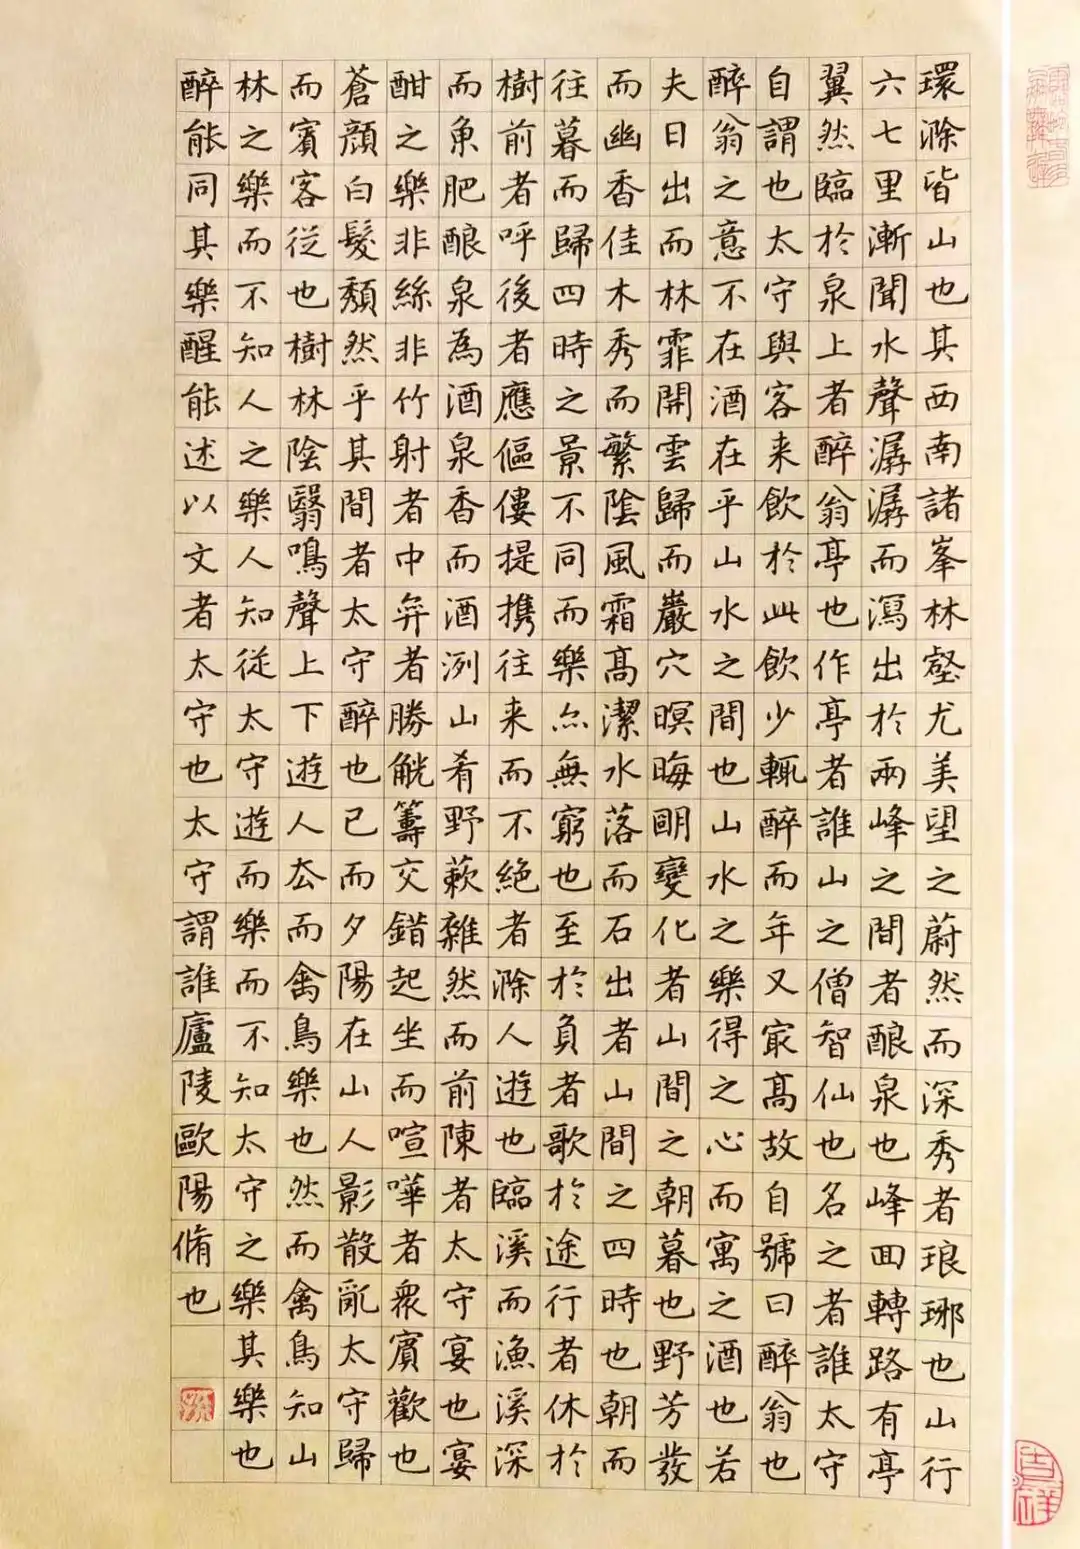 環滁皆山也其西南諸峯林壑尤美望之蔚然而深秀者琅琊也山行
六七里漸聞水聲潺潺而瀉出於兩峰之間者酿泉也峰囬轉路有亭
翼然臨於泉上者醉翁亭也作亭者誰山之僧智仙也名之者誰太守
自謂也太守與客来飲於此飲少輒醉而年又冣髙故自號曰醉翁也
醉翁之意不在酒在乎山水之間也山水之樂得之心而寓之酒也若
夫日出而林霏開雲歸而巖穴暝晦明變化者山間之朝暮也野芳發
而幽香佳木秀而繁陰風霜髙潔水落而石出者山間之四時也朝而
往暮而歸四時之景不同而樂亦無窮也至於負者歌於途行者休於
樹前者呼後者應傴僂提携往来而不絶者滁人遊也臨溪而漁溪深
而魚肥酿泉為酒泉香而酒洌山肴野蔌雜然而前陳者太守宴也宴
酣之樂非絲非竹射者中弈者勝觥籌交錯起坐而喧嘩者衆賓歡也
蒼顔白髮頽然乎其間者太守醉也已而夕陽在山人影散亂太守歸
而賓客従也樹林陰翳鳴聲上下遊人去而禽鳥樂也然而禽鳥知山
林之樂而不知人之樂人知従太守遊而樂而不知太守之樂其樂也
醉能同其樂醒能述以文者太守也太守謂誰廬陵歐陽脩也
吉祥